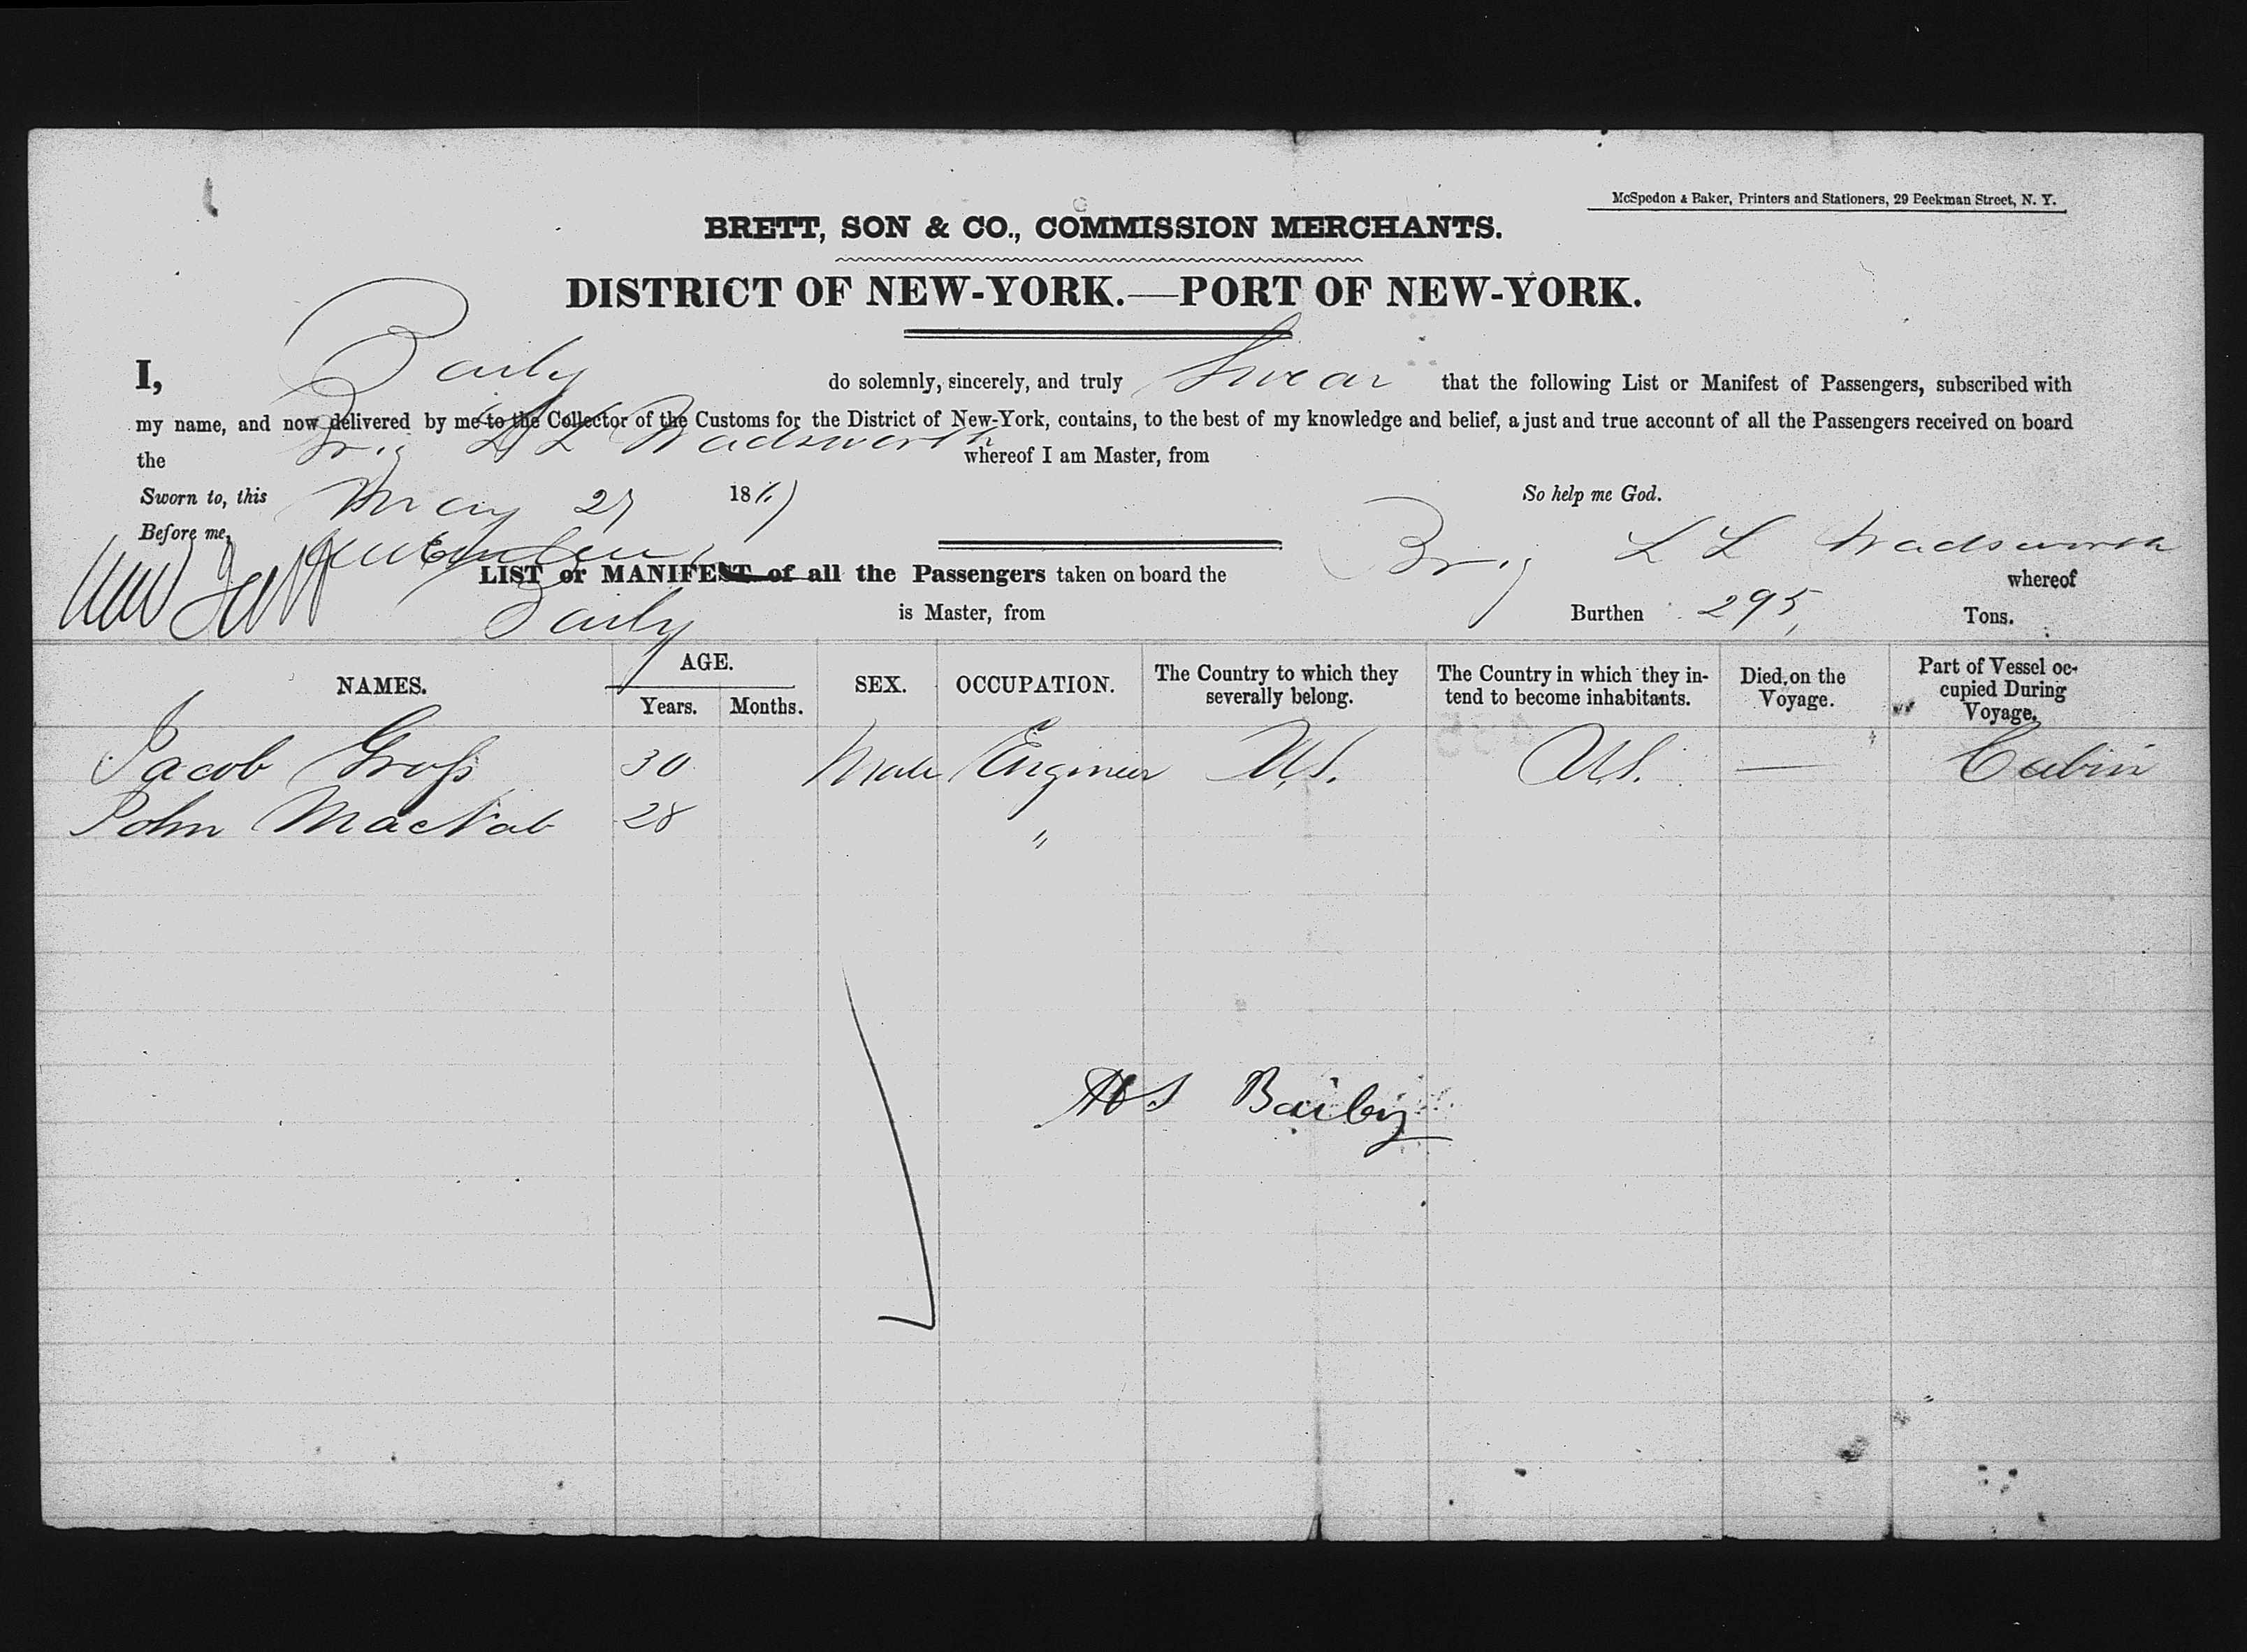 McSpedon & Baker, Printers and Stationers, 29 Beekman Street, N. Y.
BRETT, SON & CO., COMMISSION MERCHANTS.
DISTRICT OF NEW-YORK.—PORT OF NEW-YORK.
I, Baily do solemnly, sincerely, and truly Swear that the following List or Manifest of Passengers, subscribed with
my name, and now delivered by me to the Collector of the Customs for the District of New-York, contains, to the best of my knowledge and belief, a just and true account of all the Passengers received on board
the Brig L L Wadsworth whereof I am Master, from
Sworn to, this May 27 18 So help me God.
Before me,
LIST or MANIFEST of all the Passengers taken on board the Brig L L Wadsworth whereof
Baily is Master, from Burthen 295, Tons.
NAMES. AGE. Years. Months. SEX. OCCUPATION. The Country to which they severally belong. The Country in which they intend to become inhabitants. Died on the Voyage. Part of Vessel occupied During Voyage.
Jacob Gross 30 Male Engineer U.S. U.S. — Cabin
John MacNab 28 "
Baily